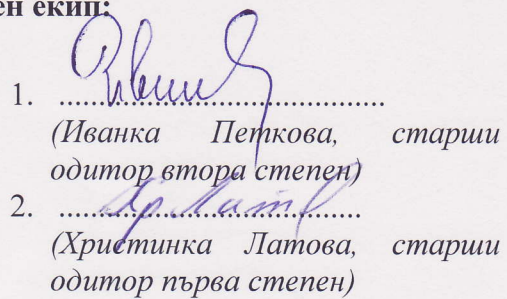 ен екип:
1. ........................................
(Иванка Петкова, старши
одитор втора степен)
2. .....................................
(Христинка Латова, старши
одитор първа степен)